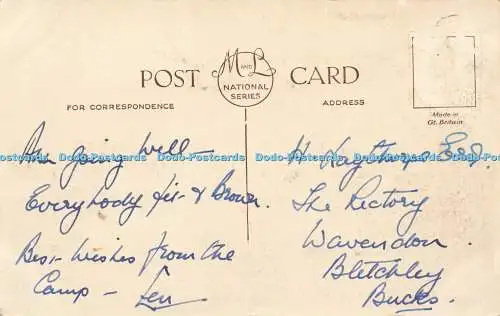 POST CARD
M AND L
NATIONAL
SERIES
FOR CORRESPONDENCE
ADDRESS
Made in
Gt. Britain
Dodo-Postcards Dodo-Postcards Dodo-Postcards Dodo-Postcards Dodo-Postcards
All going well
Everybody fit & Brown.
Best Wishes from the
Camp - Len
H. Esq.
The Rectory
Wavendon
Bletchley
Bucks.